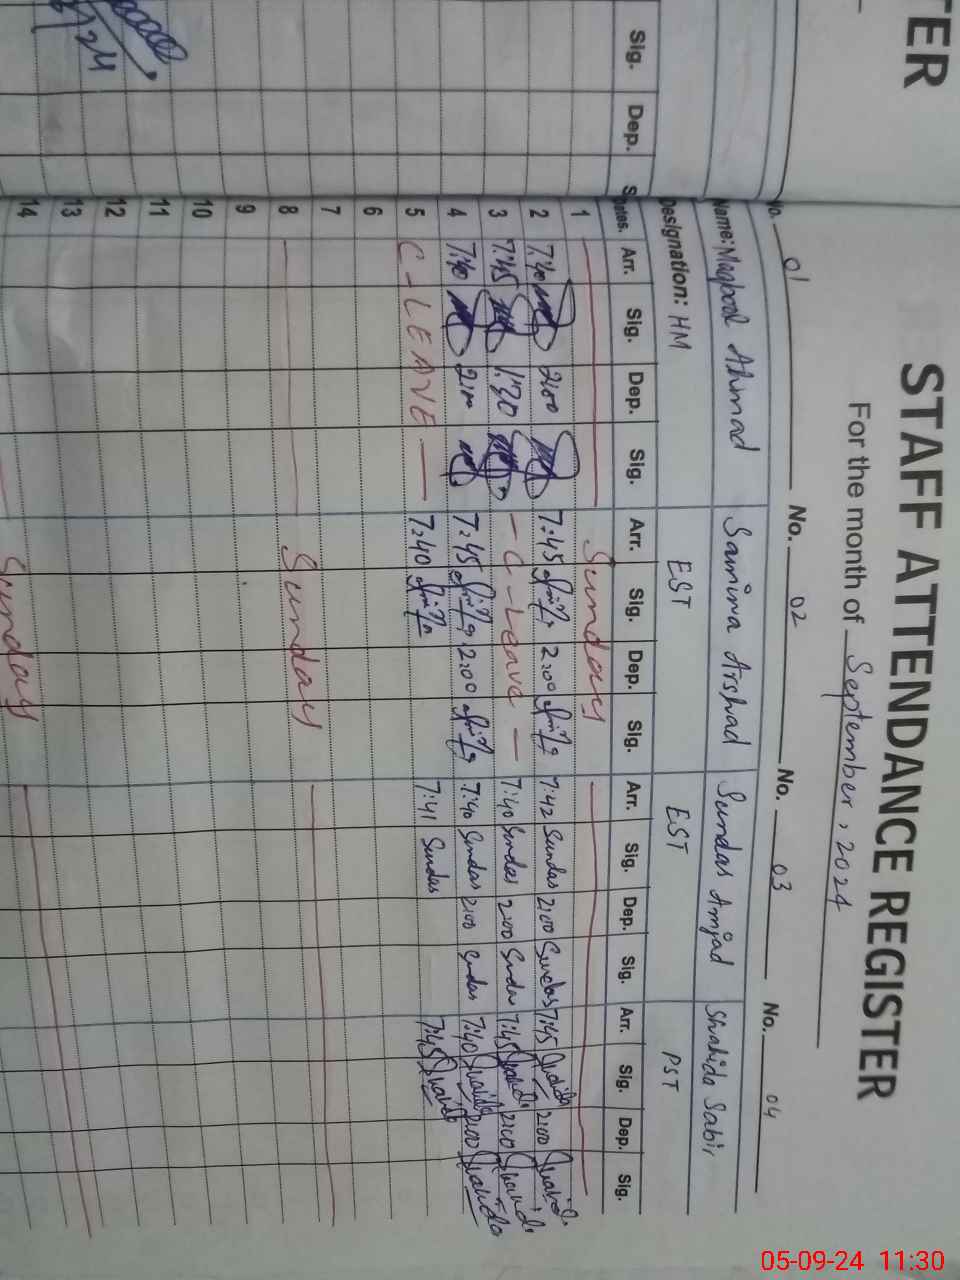 TER
STAFF ATTENDANCE REGISTER
For the month of September, 2024
No. 01 No. 02 No. 03 No. 04
Name: Maqbool Ahmad Samina Arshad Sundas Amjad Shahida Sabir
Designation: HM EST EST PST
Sig. Dep. S
Dates. Arr. Sig. Dep. Sig. Arr. Sig. Dep. Sig. Arr. Sig. Dep. Sig. Arr. Sig. Dep. Sig.
1 Sunday
2 7:40 2:00 7:45 2:00 7:42 Sundas 2:00 Sundas 7:45 Shahida 2:00 Shahida
3 7:45 1:20 - C-Leave - 7:40 Sundas 2:00 Sundas 7:45 Shahida 2:00 Shahida
4 7:40 2:00 7:45 2:00 7:40 Sundas 2:00 Sundas 7:40 Shahida 2:00 Shahida
5 C-LEAVE 7:40 7:41 Sundas 7:45 Shahida
6
7
8 Sunday
9
10
11
12
13
14 Sunday
05-09-24 11:30